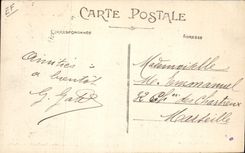 CARTE POSTALE
CORRESPONDANCE
ADRESSE
Amitiés
à bientôt
Mademoiselle
52 des Chartreux
Marseille